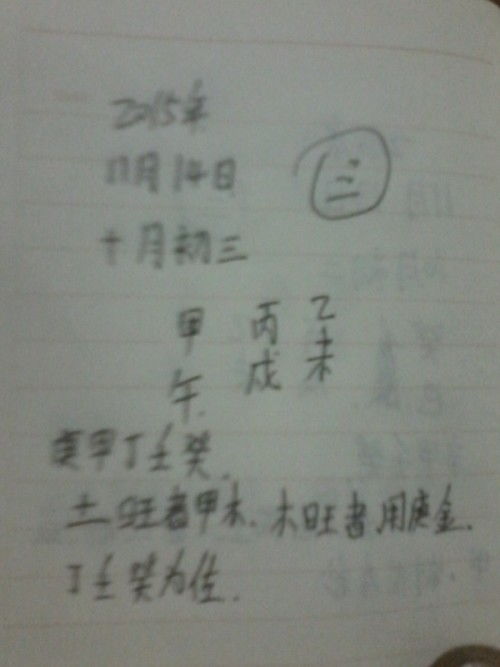 2015年
11月14日
三
十月初三
甲 丙 乙
午 戌 未
庚甲丁壬癸.
土旺者甲木.木旺者用庚金.
丁壬癸为佳.